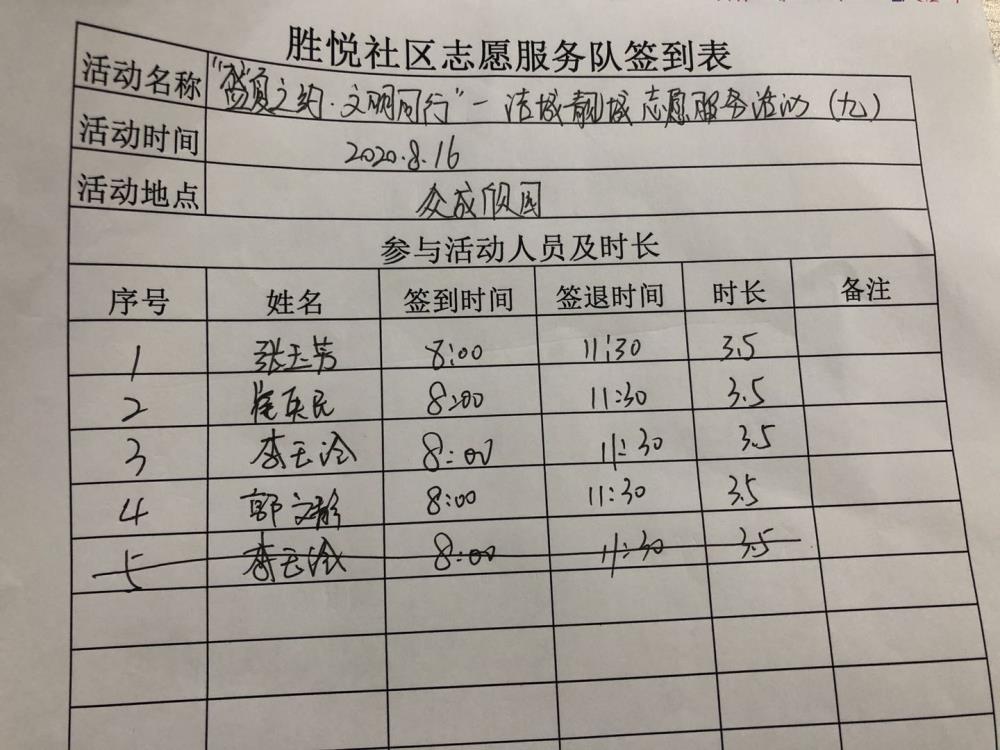 胜悦社区志愿服务队签到表
活动名称 "盛夏之约·文明同行"一洁城靓城志愿服务活动（九）
活动时间 2020.8.16
活动地点 众成
参与活动人员及时长
序号 姓名 签到时间 签退时间 时长 备注
1 张玉芳 8:00 11:30 3.5
2 崔英民 8:00 11:30 3.5
3 李玉冷 8:00 11:30 3.5
4 郭文静 8:00 11:30 3.5
5 李玉冷 8:00 11:30 3.5